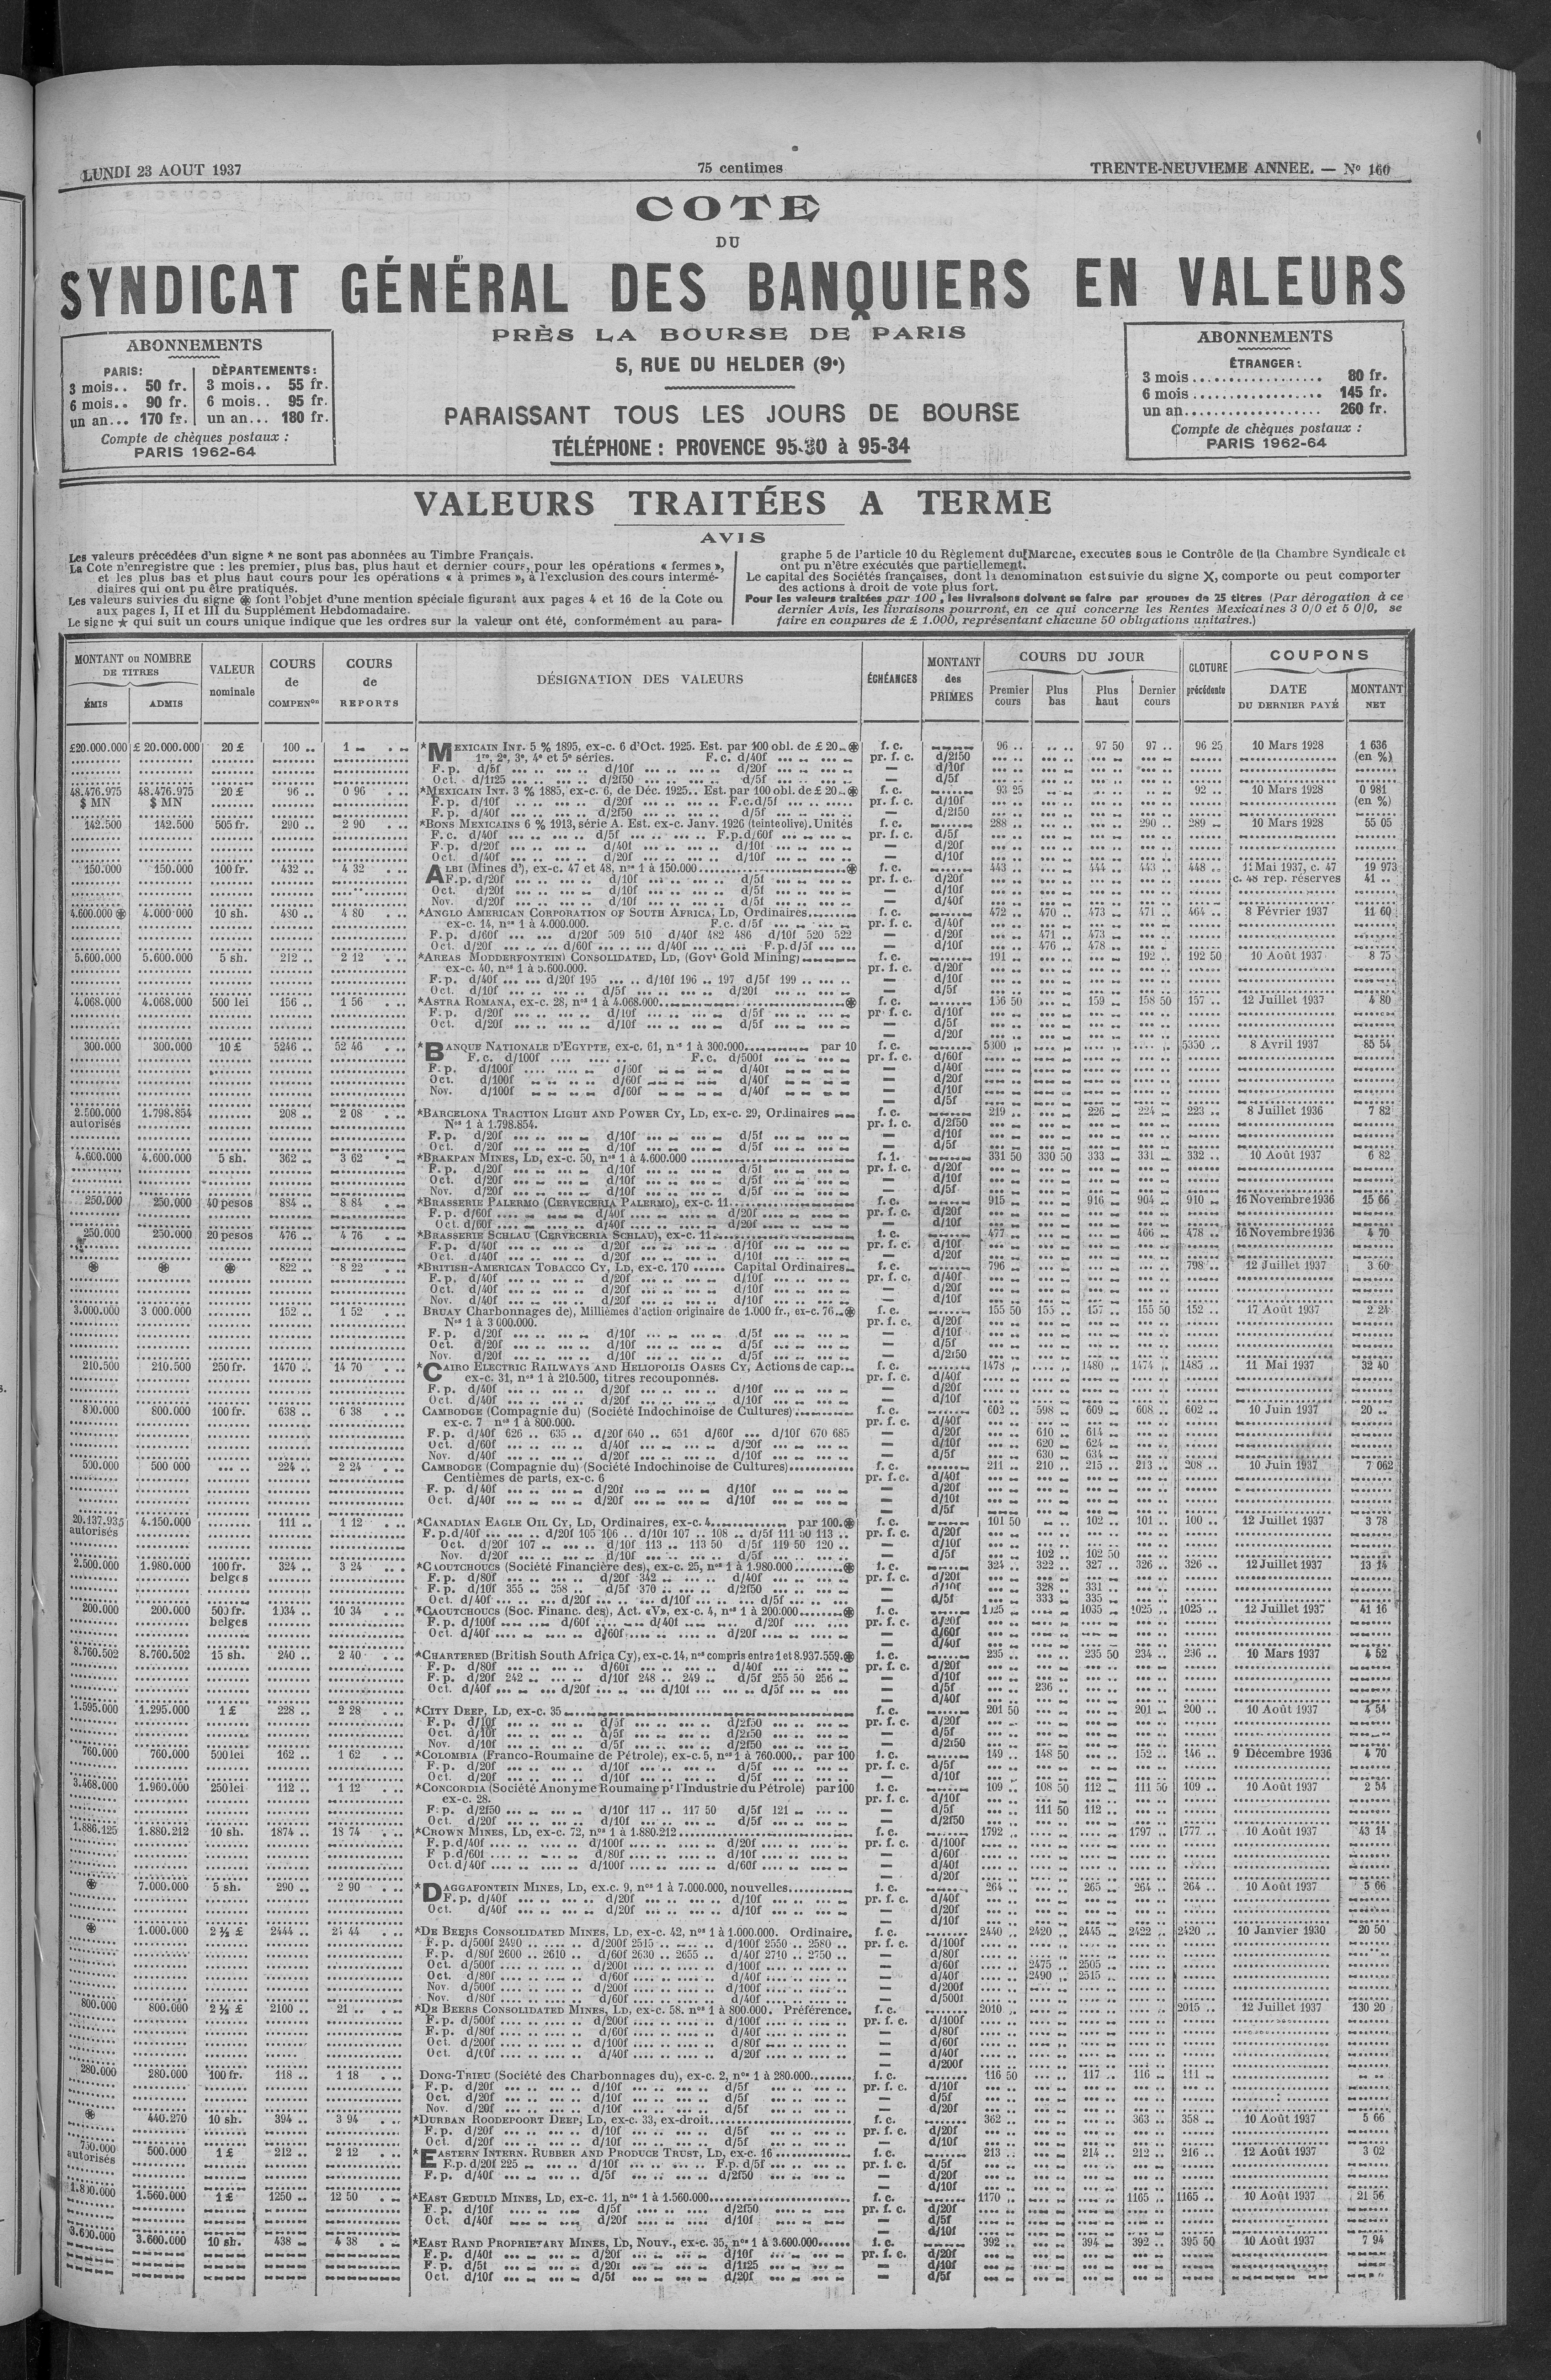 LUNDI 23 AOUT 1937
75 centimes
TRENTE-NEUVIEME ANNEE. — No 160
COTE
DU
SYNDICAT GÉNÉRAL DES BANQUIERS EN VALEURS
PRÈS LA BOURSE DE PARIS
5, RUE DU HELDER (9e)
PARAISSANT TOUS LES JOURS DE BOURSE
TÉLÉPHONE : PROVENCE 95-30 à 95-34
ABONNEMENTS
PARIS: DÉPARTEMENTS:
3 mois.. 50 fr. 3 mois.. 55 fr.
6 mois.. 90 fr. 6 mois.. 95 fr.
un an... 170 fr. un an... 180 fr.
Compte de chèques postaux :
PARIS 1962-64
ABONNEMENTS
ÉTRANGER:
3 mois.................. 80 fr.
6 mois.................. 145 fr.
un an................... 260 fr.
Compte de chèques postaux :
PARIS 1962-64
VALEURS TRAITÉES A TERME
AVIS
Les valeurs précédées d'un signe * ne sont pas abonnées au Timbre Français.
La Cote n'enregistre que : les premier, plus bas, plus haut et dernier cours, pour les opérations « fermes »,
et les plus bas et plus haut cours pour les opérations « à primes », à l'exclusion des cours intermé-
diaires qui ont pu être pratiqués.
Les valeurs suivies du signe ⊛ font l'objet d'une mention spéciale figurant aux pages 4 et 16 de la Cote ou
aux pages I, II et III du Supplément Hebdomadaire.
Le signe ★ qui suit un cours unique indique que les ordres sur la valeur ont été, conformément au para-
graphe 5 de l'article 10 du Règlement du Marche, executes sous le Contrôle de la Chambre Syndicale et
ont pu n'être exécutés que partiellement.
Le capital des Sociétés françaises, dont la denomination est suivie du signe X, comporte ou peut comporter
des actions à droit de vote plus fort.
Pour les valeurs traitées par 100, les livraisons doivent se faire par groupes de 25 titres (Par dérogation à ce
dernier Avis, les livraisons pourront, en ce qui concerne les Rentes Mexicaines 3 0/0 et 5 0/0, se
faire en coupures de £ 1.000, représentant chacune 50 obligations unitaires.)
MONTANT ou NOMBRE DE TITRES
ÉMIS ADMIS
VALEUR nominale
COURS de COMPENon
COURS de REPORTS
DÉSIGNATION DES VALEURS
ÉCHÉANCES
MONTANT des PRIMES
COURS DU JOUR
Premier cours Plus bas Plus haut Dernier cours
CLOTURE précédente
COUPONS
DATE DU DERNIER PAYÉ MONTANT NET
£20.000.000 £ 20.000.000 20 £ 100 .. 1 *MEXICAIN INT. 5 % 1895, ex-c. 6 d'Oct. 1925. Est. par 100 obl. de £ 20 ⊛ f. c. 96 .. 97 50 97 .. 96 25 10 Mars 1928 1 636
1re, 2e, 3e, 4e et 5e séries. F.c. d/40f pr. f. c. d/2f50 (en %)
F.p. d/5f d/10f d/20f — d/10f
Oct. d/1f25 d/2f50 d/5f — d/5f
48.476.975 48.476.975 20 £ 96 .. 0 96 *MEXICAIN INT. 3 % 1885, ex-c. 6, de Déc. 1925.. Est. par 100 obl. de £ 20 ⊛ f. c. 93 25 92 .. 10 Mars 1928 0 981
$ MN $ MN F.p. d/10f d/20f F.c.d/5f pr. f. c. d/10f (en %)
F.p. d/40f d/2f50 d/5f — d/2f50
142.500 142.500 505 fr. 290 .. 2 90 *BONS MEXICAINS 6 % 1913, série A. Est. ex-c. Janv. 1926 (teinte olive). Unités f. c. 288 .. 290 .. 289 10 Mars 1928 55 05
F.c. d/40f d/5f F.p.d/60f pr. f. c. d/5f
F.p. d/20f d/40f d/10f — d/20f
Oct. d/40f d/20f d/10f — d/10f
150.000 150.000 100 fr. 432 .. 4 32 ALBI (Mines d'), ex-c. 47 et 48, nos 1 à 150.000 ⊛ f. c. 443 .. 444 443 448 .. 11 Mai 1937, c. 47 19 973
F.p. d/20f d/10f d/5f pr. f. c. d/20f c. 48 rep. réserves 41 ..
Oct. d/20f d/10f d/5f — d/10f
Nov. d/20f d/10f d/5f — d/40f
4.600.000 ⊛ 4.000.000 10 sh. 480 .. 4 80 *ANGLO AMERICAN CORPORATION OF SOUTH AFRICA, LD, Ordinaires f. c. 472 .. 470 473 471 464 .. 8 Février 1937 11 60
ex-c. 14, nos 1 à 4.000.000. F.c. d/5f pr. f. c. d/40f
F.p. d/60f d/20f 509 510 d/40f 482 486 d/10f 520 522 — d/20f 471 473
Oct. d/20f d/60f d/40f F.p.d/5f — d/10f 476 478
5.600.000 5.600.000 5 sh. 212 .. 2 12 *AREAS MODDERFONTEIN CONSOLIDATED, LD, (Govt Gold Mining) f. c. 191 .. 192 .. 192 50 10 Août 1937 8 75
ex-c. 40, nos 1 à 5.600.000. pr. f. c. d/20f
F.p. d/40f d/20f 195 d/10f 196 .. 197 d/5f 199 — d/10f
Oct. d/10f d/5f d/20f — d/5f
4.068.000 4.068.000 500 lei 156 .. 1 56 *ASTRA ROMANA, ex-c. 28, nos 1 à 4.068.000 ⊛ f. c. 156 50 159 158 50 157 .. 12 Juillet 1937 4 80
F.p. d/20f d/10f d/5f pr. f. c. d/10f
Oct. d/20f d/10f d/5f — d/5f
— d/20f
300.000 300.000 10 £ 5246 .. 52 46 *BANQUE NATIONALE D'EGYPTE, ex-c. 61, nos 1 à 300.000 par 10 f. c. 5300 5350 .. 8 Avril 1937 85 54
F.c. d/100f F.c. d/500f pr. f. c. d/60f
F.p. d/100f d/60f d/40f — d/40f
Oct. d/100f d/60f d/40f — d/20f
Nov. d/100f d/60f d/40f — d/10f
— d/5f
2.500.000 1.798.854 208 .. 2 08 *BARCELONA TRACTION LIGHT AND POWER CY, LD, ex-c. 29, Ordinaires f. c. 219 .. 226 224 223 .. 8 Juillet 1936 7 82
autorisés Nos 1 à 1.798.854. pr. f. c. d/2f50
F.p. d/20f d/10f d/5f — d/10f
Oct. d/20f d/10f d/5f — d/5f
4.600.000 4.600.000 5 sh. 362 .. 3 62 *BRAKPAN MINES, LD, ex-c. 50, nos 1 à 4.600.000 f. c. 331 50 330 50 333 331 332 .. 10 Août 1937 6 82
F.p. d/20f d/10f d/5f pr. f. c. d/20f
Oct. d/20f d/10f d/5f — d/10f
Nov. d/20f d/10f d/5f — d/5f
250.000 250.000 40 pesos 884 .. 8 84 *BRASSERIE PALERMO (CERVECERIA PALERMO), ex-c. 11 f. c. 915 916 904 910 16 Novembre 1936 15 66
F.p. d/60f d/40f d/20f pr. f. c. d/20f
Oct. d/60f d/40f d/20f — d/10f
250.000 250.000 20 pesos 476 .. 4 76 *BRASSERIE SCHLAU (CERVECERIA SCHLAU), ex-c. 11 f. c. 477 466 478 .. 16 Novembre 1936 4 70
F.p. d/40f d/20f d/10f pr. f. c. d/10f
Oct. d/40f d/20f d/10f — d/20f
⊛ ⊛ ⊛ 822 .. 8 22 *BRITISH-AMERICAN TOBACCO CY, LD, ex-c. 170 ...... Capital Ordinaires f. c. 796 .. 798 .. 12 Juillet 1937 3 60
F.p. d/40f d/20f d/10f pr. f. c. d/40f
Oct. d/40f d/20f d/10f — d/20f
Nov. d/40f d/20f d/10f — d/10f
3.000.000 3 000.000 152 .. 1 52 BRUAY Charbonnages de), Millièmes d'action originaire de 1.000 fr., ex-c. 76 ⊛ f. c. 155 50 155 157 155 50 152 .. 17 Août 1937 2 24
Nos 1 à 3 000.000. pr. f. c. d/20f
F.p. d/20f d/10f d/5f — d/10f
Oct. d/20f d/10f d/5f — d/5f
Nov. d/20f d/10f d/5f — d/2f50
210.500 210.500 250 fr. 1470 .. 14 70 *CAIRO ELECTRIC RAILWAYS AND HELIOPOLIS OASES CY, Actions de cap. f. c. 1478 1480 1474 1485 .. 11 Mai 1937 32 40
ex-c. 31, nos 1 à 210.500, titres recouponnés. pr. f. c. d/40f
F.p. d/40f d/20f d/10f — d/20f
Oct. d/40f d/20f d/10f — d/10f
800.000 800.000 100 fr. 638 .. 6 38 CAMBODGE (Compagnie du) (Société Indochinoise de Cultures) f. c. 602 .. 598 609 608 602 .. 10 Juin 1937 20 ..
ex-c. 7 nos 1 à 800.000. pr. f. c. d/40f
F.p. d/40f 626 .. 635 .. d/20f 640 .. 651 d/60f d/10f 670 685 — d/20f 610 614
Oct. d/60f d/40f d/20f — d/10f 620 624
Nov. d/40f d/20f d/10f — d/5f 630 634
500.000 500 000 224 .. 2 24 CAMBODGE (Compagnie du) (Société Indochinoise de Cultures) f. c. 211 .. 210 215 213 208 .. 10 Juin 1937 7 062
Centièmes de parts, ex-c. 6 pr. f. c. d/40f
F. p. d/40f d/20f d/10f — d/20f
Oct. d/40f d/20f d/10f — d/10f
— d/5f
20.137.935 4.150.000 111 .. 1 12 *CANADIAN EAGLE OIL CY, LD, Ordinaires, ex-c. 4 par 100. ⊛ f. c. 101 50 102 .. 101 .. 100 .. 12 Juillet 1937 3 78
autorisés F.p.d/40f d/20f 105 106 .. d/10f 107 .. 108 .. d/5f 111 50 113 .. pr. f. c. d/20f
Oct. d/20f 107 d/10f 113 .. 113 50 d/5f 119 50 120 .. — d/10f
Nov. d/20f d/10f d/5f — d/5f 102 102 50
2.500.000 1.980.000 100 fr. 324 .. 3 24 *CAOUTCHOUCS (Société Financière des), ex-c. 25, nos 1 à 1.980.000 ⊛ f. c. 324 322 327 326 326 .. 12 Juillet 1937 13 14
belges F.p. d/80f d/20f 342 d/40f pr. f. c. d/20f
F.p. d/10f 355 .. 358 .. d/5f 370 d/2f50 — d/10f 328 331
Oct. d/40f d/20f d/10f d/5f — d/5f 333 335
200.000 200.000 500 fr. 1034 .. 10 34 *CAOUTCHOUCS (Soc. Financ. des), Act. «V», ex-c. 4, nos 1 à 200.000 ⊛ f. c. 1025 1035 1025 1025 .. 12 Juillet 1937 41 16
belges F.p. d/100f d/60f d/40f d/20f pr. f. c. d/20f
Oct. d/40f d/60f d/20f — d/60f
— d/40f
8.760.502 8.760.502 15 sh. 240 .. 2 40 *CHARTERED (British South Africa Cy), ex-c. 14, nos compris entre 1 et 8.937.559. ⊛ f. c. 235 .. 235 50 234 236 .. 10 Mars 1937 4 52
F.p. d/80f d/60f d/40f pr. f. c. d/20f
F.p. d/20f 242 d/10f 248 .. 249 .. d/5f 255 50 256 — d/10f
Oct. d/40f d/20f d/10f d/5f — d/5f 236
— d/40f
1.595.000 1.295.000 1 £ 228 .. 2 28 *CITY DEEP, LD, ex-c. 35 f. c. 201 50 201 200 .. 10 Août 1937 4 54
F.p. d/10f d/5f d/2f50 pr. f. c. d/20f
Oct. d/10f d/5f d/2f50 — d/5f
Nov. d/10f d/5f d/2f50 — d/2f50
760.000 760.000 500 lei 162 .. 1 62 *COLOMBIA (Franco-Roumaine de Pétrole), ex-c. 5, nos 1 à 760.000.. par 100 f. c. 149 .. 148 50 152 146 .. 9 Décembre 1936 4 70
F.p. d/20f d/10f d/5f pr. f. c. d/5f
Oct. d/20f d/10f d/5f — d/10f
3.468.000 1.960.000 250 lei 112 .. 1 12 *CONCORDIA (Société Anonyme Roumaine pr l'Industrie du Pétrole) par 100 f. c. 109 .. 108 50 112 111 50 109 .. 10 Août 1937 2 54
ex-c. 28. pr. f. c. d/10f
F.p. d/2f50 d/10f 117 .. 117 50 d/5f 121 — d/5f 111 50 112
Oct. d/20f d/10f d/5f — d/2f50
1.886.125 1.880.212 10 sh. 1874 .. 18 74 *CROWN MINES, LD, ex-c. 72, nos 1 à 1.880.212 f. c. 1792 1797 1777 .. 10 Août 1937 43 14
F.p.d/40f d/100f d/20f pr. f. c. d/100f
F p.d/60f d/80f d/10f — d/60f
Oct.d/40f d/100f d/60f — d/40f
— d/20f
⊛ 7.000.000 5 sh. 290 .. 2 90 *DAGGAFONTEIN MINES, LD, ex.c. 9, nos 1 à 7.000.000, nouvelles f. c. 264 265 264 264 .. 10 Août 1937 5 66
F.p. d/40f d/20f d/10f pr. f. c. d/40f
Oct. d/40f d/20f d/10f — d/20f
— d/10f
⊛ 1.000.000 2 ½ £ 2444 .. 24 44 *DE BEERS CONSOLIDATED MINES, LD, ex-c. 42, nos 1 à 1.000.000. Ordinaire. f. c. 2440 2420 2445 2422 2420 .. 10 Janvier 1930 20 50
F.p. d/500f 2490 d/200f 2515 d/100f 2550 .. 2580 .. pr. f. c. d/100f
F.p. d/80f 2600 .. 2610 .. d/60f 2630 .. 2655 .. d/40f 2710 .. 2750 .. — d/80f
Oct. d/500f d/200f d/100f — d/60f 2475 2505
Oct. d/80f d/60f d/40f — d/40f 2490 2515
Nov. d/500f d/200f d/100f — d/200f
Nov. d/80f d/60f d/40f — d/500f
800.000 800.000 2 ½ £ 2100 .. 21 .. *DE BEERS CONSOLIDATED MINES, LD, ex-c. 58. nos 1 à 800.000. Préférence. f. c. 2010 2015 .. 12 Juillet 1937 130 20
F.p. d/500f d/200f d/100f pr. f. c. d/100f
F.p. d/80f d/60f d/40f — d/80f
Oct. d/200f d/100f d/80f — d/60f
Oct. d/60f d/40f d/20f — d/40f
— d/200f
280.000 280.000 100 fr. 118 .. 1 18 DONG-TRIEU (Société des Charbonnages du), ex-c. 2, nos 1 à 280.000 f. c. 116 50 117 116 111
F.p. d/20f d/10f d/5f pr. f. c. d/10f
Oct. d/20f d/10f d/5f — d/5f
Nov. d/20f d/10f d/5f — d/20f
⊛ 440.270 10 sh. 394 .. 3 94 *DURBAN ROODEPOORT DEEP, LD, ex-c. 33, ex-droit f. c. 362 .. 363 358 .. 10 Août 1937 5 66
F.p. d/20f d/10f d/5f pr. f. c. d/20f
Oct. d/20f d/10f d/5f — d/10f
750.000 500.000 1 £ 212 .. 2 12 *EASTERN INTERN. RUBBER AND PRODUCE TRUST, LD, ex-c. 16 f. c. 213 .. 214 212 216 .. 12 Août 1937 3 02
autorisés F.p. d/20f 225 d/10f F.p. d/5f pr. f. c. d/5f
F.p. d/40f d/5f d/2f50 — d/20f
— d/10f
1.800.000 1.560.000 1 £ 1250 .. 12 50 *EAST GEDULD MINES, LD, ex-c. 11, nos 1 à 1.560.000 f. c. 1170 1165 1165 .. 10 Août 1937 21 56
F.p. d/10f d/5f d/2f50 pr. f. c. d/20f
Oct. d/40f d/20f d/10f — d/5f
— d/10f
3.600.000 3.600.000 10 sh. 438 4 38 *EAST RAND PROPRIETARY MINES, LD, Nouv., ex-c. 35, nos 1 à 3.600.000 f. c. 392 .. 394 392 395 50 10 Août 1937 7 94
F.p. d/40f d/20f d/10f pr. f. c. d/20f
F.p. d/5f d/20f d/1f25 — d/10f
Oct. d/10f d/5f d/20f — d/5f